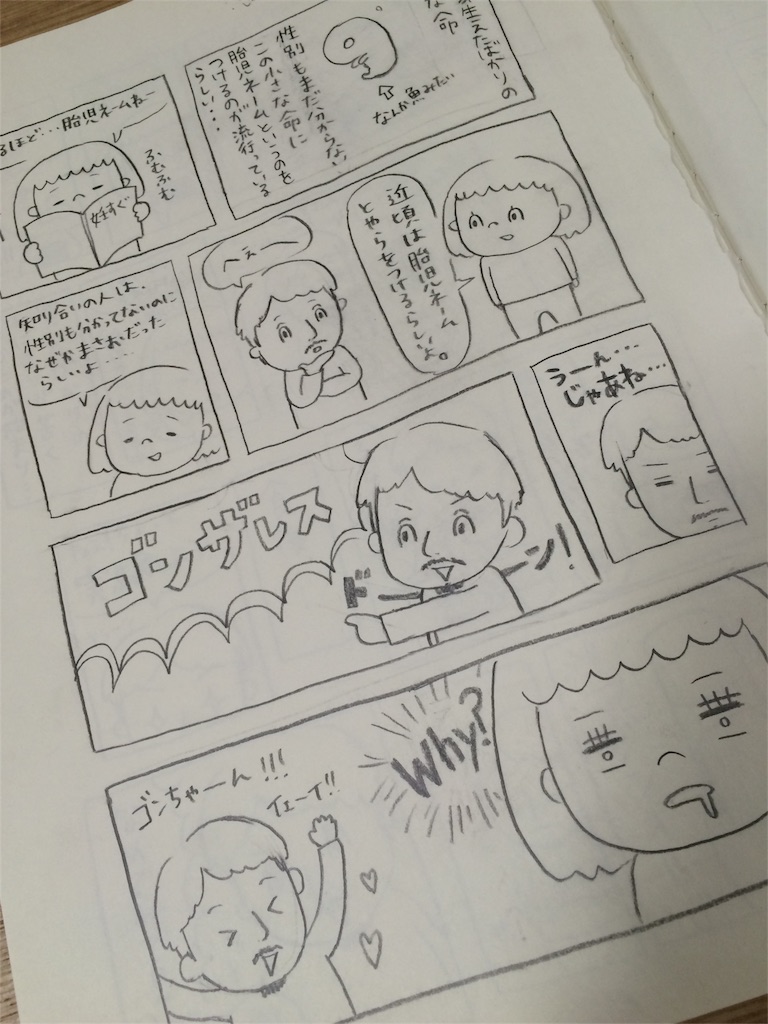 生えたばかりの
な命
なんか魚みたい
性別もまだ分からない
この小さな命に
胎児ネームというのを
つけるのが流行っている
らしい・・・
るほど…胎児ネームねー
ふむふむ
妊すぐ
近頃は胎児ネーム
とやらをつけるらしいよ。
へぇー
知り合いの人は、
性別も分かってないのに
なぜかまさおだった
らしいよ……
うーん…
じゃあね…
ゴンザレス
ドーーン!
Why?
ゴンちゃーん!!!
イェーイ!!